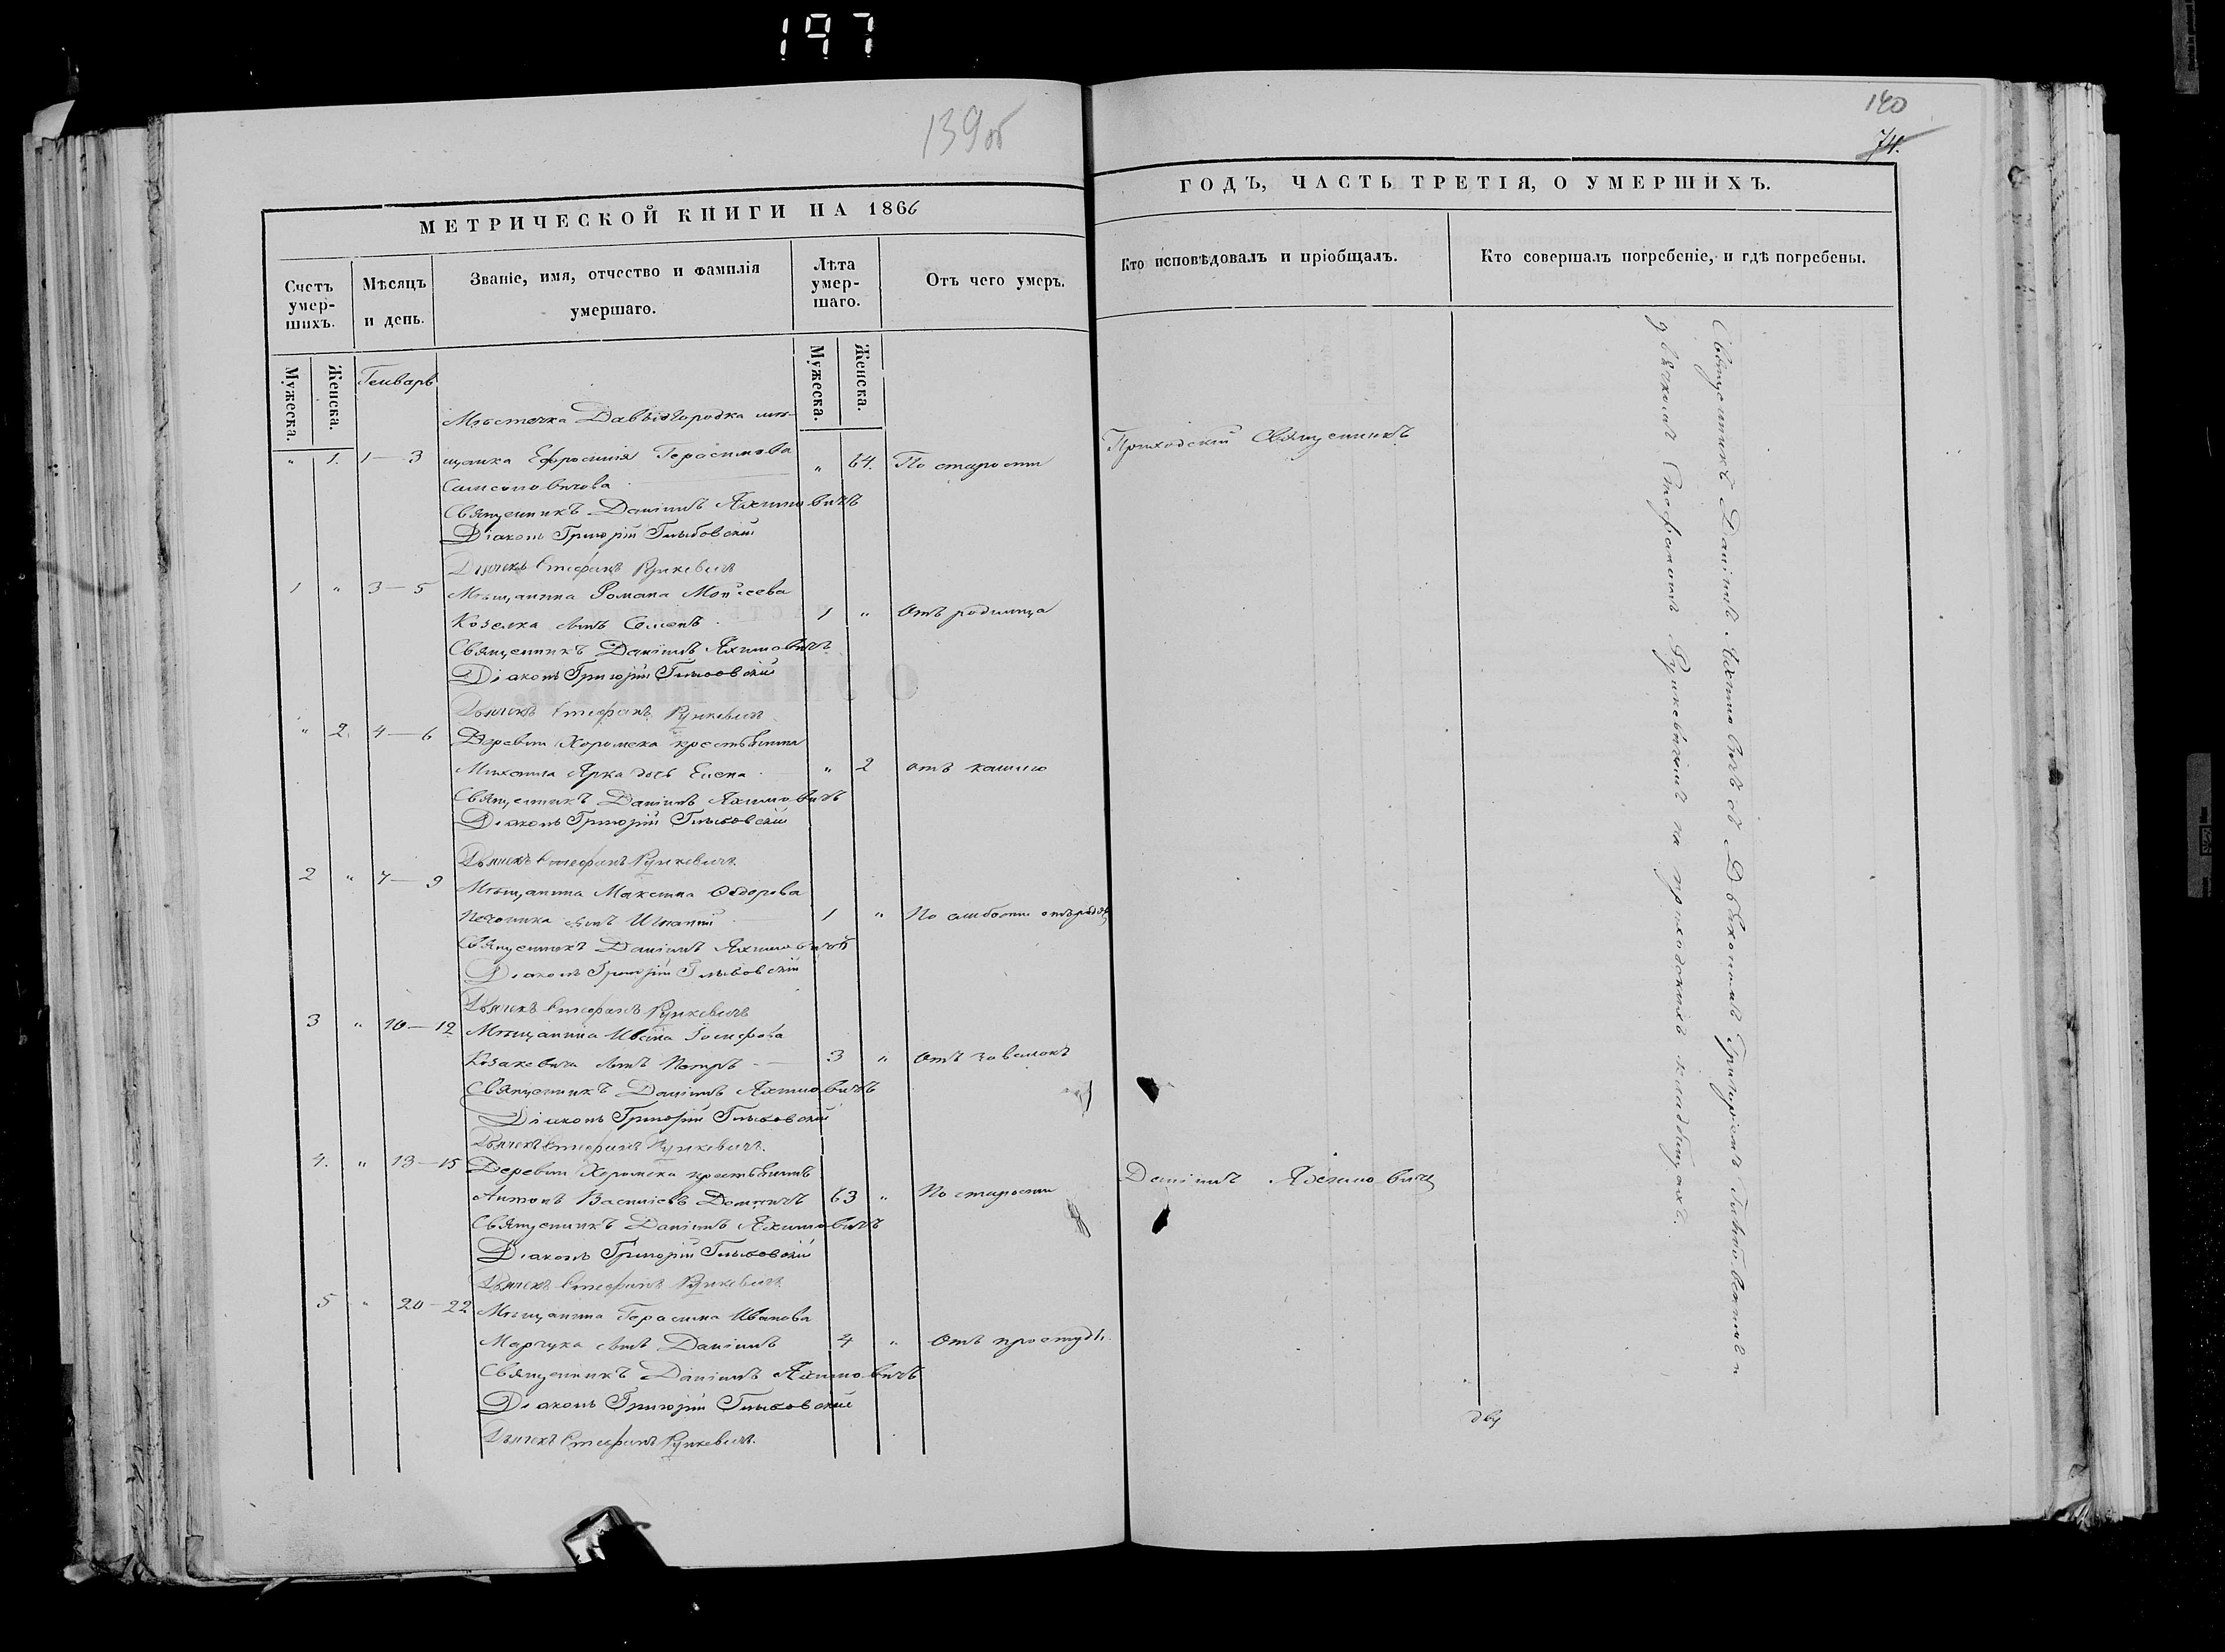 197
139 об
140
74.
МЕТРИЧЕСКОЙ КНИГИ НА 1866
ГОДЪ, ЧАСТЬ ТРЕТІЯ, О УМЕРШИХЪ.
Счетъ умер-шихъ.
Мѣсяцъ и день.
Званіе, имя, отчество и фамилія умершаго.
Лѣта умер-шаго.
Отъ чего умеръ.
Кто исповѣдовалъ и пріобщалъ.
Кто совершалъ погребеніе, и гдѣ погребены.
Мужеска.
Женска.
Генварь
Мужеска.
Женска.
Мѣстечка Давыдгородка мѣ-
" 1. 1—3 щанка Ефросинія Герасимова " 64. По старости
Самсоновичова
Священникъ Даніилъ Яхимовичъ
Діаконъ Григорій Глыбовскій
Дьячекъ Стефанъ Рункевичъ
1 " 3—5 Мѣщанина Романа Моисеева
Козелка сынъ Семенъ 1 " Отъ родимца
Священникъ Даніилъ Яхимовичъ
Діаконъ Григорій Глыбовскій
Дьячекъ Стефанъ Рункевичъ
" 2. 4—6 Деревни Хоромска крестьянина
Михаила Ярка дочь Елена " 2 отъ кашлю
Священникъ Даніилъ Яхимовичъ
Діаконъ Григорій Глыбовскій
Дьячекъ Стефанъ Рункевичъ
2 " 7—9 Мѣщанина Максима Ѳедорова
сынъ Игнатій 1 " По слабости отъ
Священникъ Даніилъ Яхимовичъ
Діаконъ Григорій Глыбовскій
Дьячекъ Стефанъ Рункевичъ
3 " 10—12 Мѣщанина Ивана Іосифова
Козакевича сынъ Петръ 3 " Отъ
Священникъ Даніилъ Яхимовичъ
Діаконъ Григорій Глыбовскій
Дьячекъ Стефанъ Рункевичъ.
4. " 13—15 Деревни Хоромска крестьянинъ
Антонъ Василіевъ 63 " По старости
Священникъ Даніилъ Яхимовичъ
Діаконъ Григорій Глыбовскій
Дьячекъ Стефанъ Рункевичъ
5 " 20—22 Мѣщанина Герасима Иванова
Марчука сынъ Даніилъ 4 " Отъ простуды.
Священникъ Даніилъ Яхимовичъ
Діаконъ Григорій Глыбовскій
Дьячекъ Стефанъ Рункевичъ.
Приходскій Священникъ
Даніилъ Яхимовичъ
Священникъ Даніилъ Яхимовичъ съ Діакономъ Григоріемъ Глыбовскимъ и
дьячкомъ Стефаномъ Рункевичемъ на приходскихъ кладбищахъ.